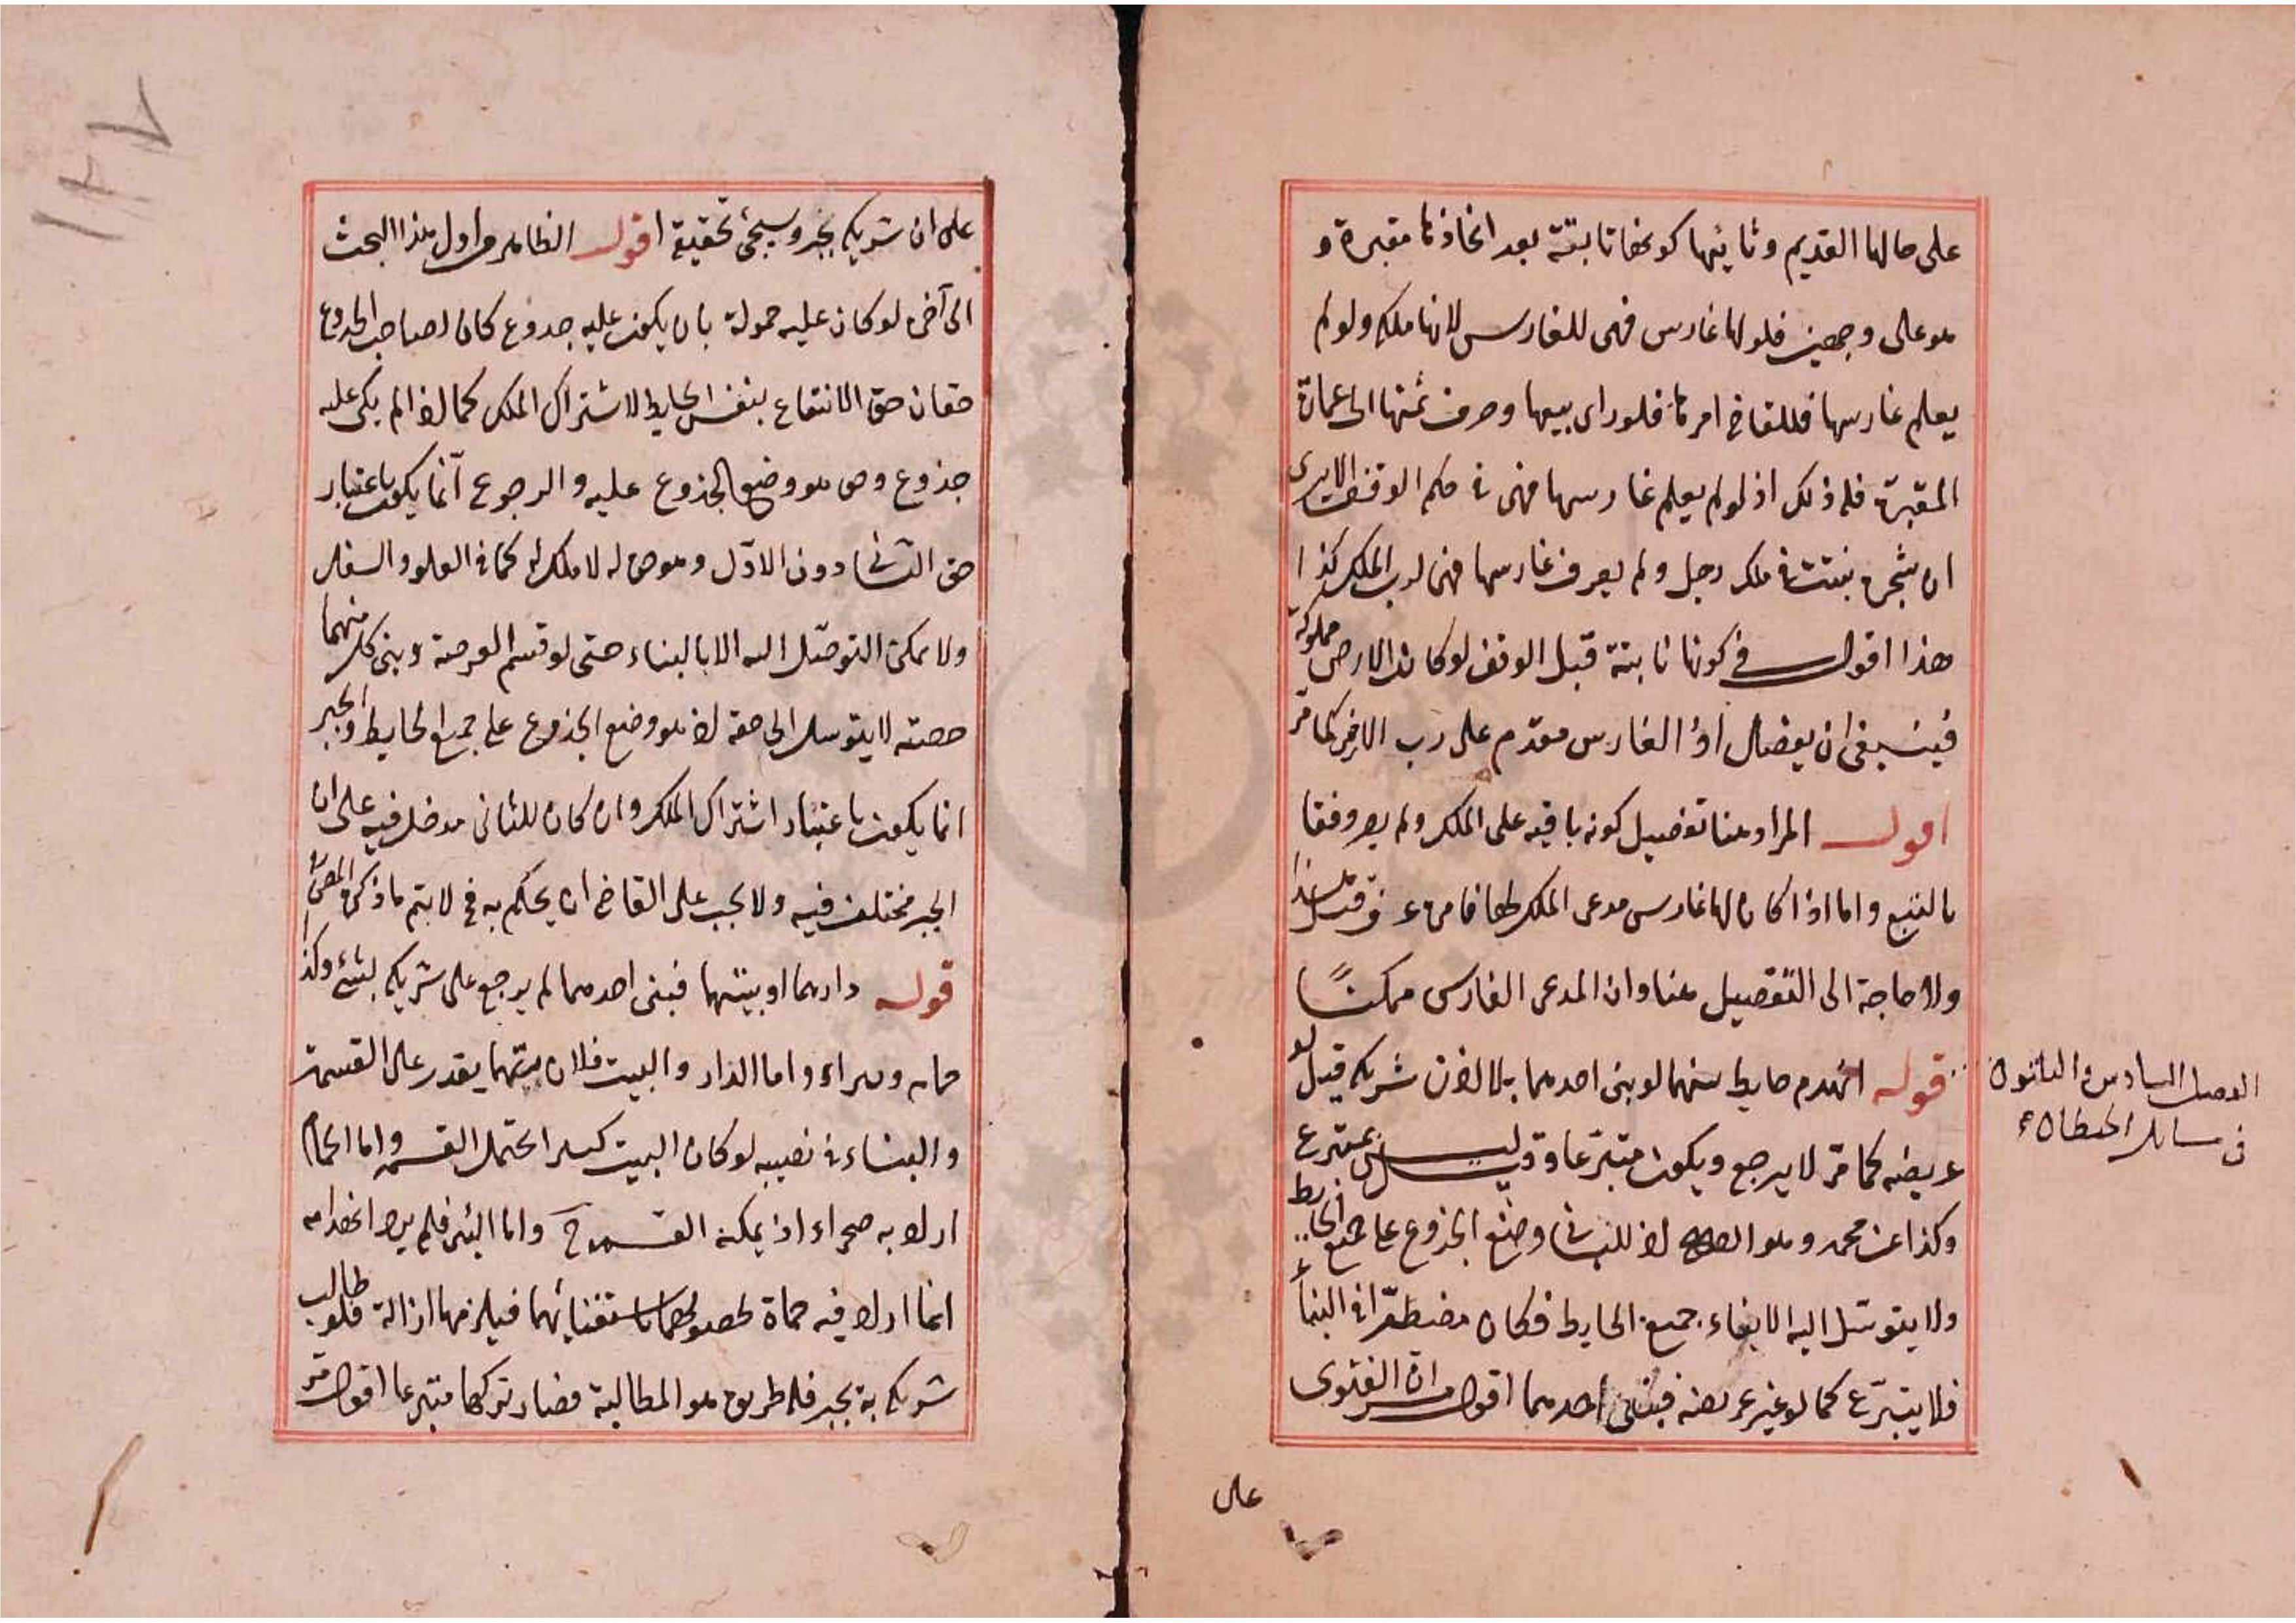 على حالها القديم وثانيها كونها نابتة بعد اتخاذها مقبرة و
هو على وجهين فلو لها غارس فهى للغارس لانها ملكه ولو لم
يعلم غارسها فللقاضي امرها فلو راى بيعها وصرف ثمنها الى عمارة
المقبرة فله ذلك اذ لو لم يعلم غارسها فهى في حكم الوقف الا يرى
ان شجرة نبتت في ملك رجل ولم يعرف غارسها فهى لرب الملك كذا
هذا اقول في كونها نابتة قبل الوقف لو كانت الارض مملوكة
فينبغى ان يفصل اذ الغارس مقدم على رب الارض كما مر
اقول المراد هنا تفصيل كونه باقيه على الملك ولم يصر وقفا
بالتبع واما اذا كان لها غارس مدعى الملك لها فامره عرف قبيل هذا
ولا حاجة الى التفصيل هنا وان المدعى الغارس ممكنا
قوله انهدم حايط بينهما لو بنى احدهما بلا اذن شريكه قيل لو
عريضه كما مر لا يرجع ويكون متبرعا وقيل ليس بمتبرع
وكذا عن محمد وهو الاصح اذ للبانى وضع الجذوع على جميع الحايط
ولا يتوسل اليه الا ببناء جميع الحايط فكان مضطرا في البناء
فلا يتبرع كما لو غير عريضه فبنى احدهما اقول مر ان الفتوى
على
الفصل السادس والثلثون
في مسائل الحيطان
على ان شريكه يجبر وسيجئ تحقيقه اقول الظاهر من اول هذا البحث
الى آخره لو كان عليه حمولة بان يكون عليه جذوع كان لصاحب الجذوع
حقان حق الانتفاع بنفس الحايط لاشتراك الملك كما اذا لم يكن عليه
جذوع وحق هو وضع الجذوع عليه والرجوع انما يكون باعتبار
حق الثانى دون الاول وهو حق له لا ملك له كما في العلو والسفل
ولا يمكن التوصل اليه الا بالبناء حتى لو قسم العرصة وبنى كل منهما
حصته لا يتوسل الى حقه اذ هو وضع الجذوع على جميع الحايط والجبر
انما يكون باعتبار اشتراك الملك وان كان للثانى مدخل فيه على ان
الجبر مختلف فيه ولا يجب على القاضي ان يحكم به فح لا يتم ما ذكره المص
قوله دارهما او بيتهما فبنى احدهما لم يرجع على شريكه بشئ وكذا
حمام وبئر اء واما الدار والبيت فلان بينهما يقدر على القسمة
والبناء في نصيبه لو كان البيت كبيرا يحتمل القسمة واما الحمام
اراد به صحراء اذ يمكنه القسمة ح واما البئر فلم يرد انهدامه
انما اراد فيه حماة فيلزمهما ازالة فلو طالب
شريكه به يجبر فله طريق هو المطالبة فصار تركها متبرعا اقول مر